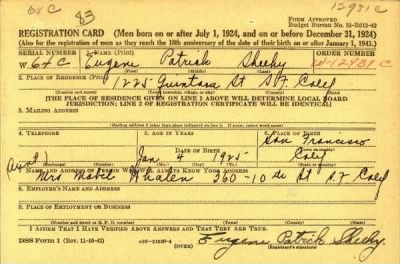 68 C
83
12981 C
REGISTRATION CARD (Men born on or after July 1, 1924, and on or before December 31, 1924)
FORM APPROVED
Budget Bureau No. 33-R012-42
(Also for the registration of men as they reach the 18th anniversary of the date of their birth on or after January 1, 1943.)
SERIAL NUMBER
1. NAME (Print)
ORDER NUMBER
W. 68 C
Eugene Patrick Sheehy
W-12981 C
(First) (Middle) (Last)
2. PLACE OF RESIDENCE (Print)
1225 Quintara St S.F. Calif
(THE PLACE OF RESIDENCE GIVEN ON LINE 2 ABOVE WILL DETERMINE LOCAL BOARD
JURISDICTION; LINE 2 OF REGISTRATION CERTIFICATE WILL BE IDENTICAL)
3. MAILING ADDRESS
4. TELEPHONE
5. AGE IN YEARS
6. PLACE OF BIRTH
San Francisco
DATE OF BIRTH
Jan 4 1925
Calif
(Aunt)
7. NAME AND ADDRESS OF PERSON WHO WILL ALWAYS KNOW YOUR ADDRESS
Mrs Mabel Whalen 360-10th St S.F. Calif
8. EMPLOYER'S NAME AND ADDRESS
9. PLACE OF EMPLOYMENT OR BUSINESS
I AFFIRM THAT I HAVE VERIFIED ABOVE ANSWERS AND THAT THEY ARE TRUE.
DSS Form 1 (Rev. 11-16-42)
(OVER)
Eugene Patrick Sheehy
(Registrant's signature)